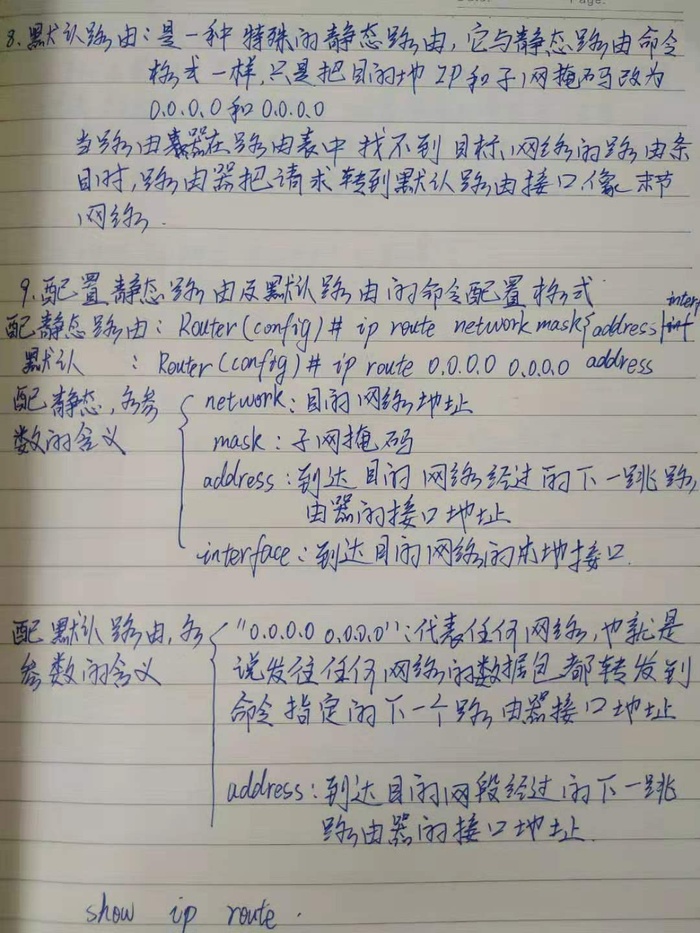 8.默认路由:是一种特殊的静态路由,它与静态路由命令
格式一样,只是把目的地IP和子网掩码改为
0.0.0.0和0.0.0.0
当路由器在路由表中找不到目标网络的路由条
目时,路由器把请求转到默认路由接口.像末节
网络.
9.配置静态路由及默认路由的命令配置格式
配静态路由:Router(config)# ip route network mask{address|inter
默认 :Router(config)# ip route 0.0.0.0 0.0.0.0 address
配静态,各参
数的含义
network:目的网络地址
mask:子网掩码
address:到达目的网络经过的下一跳路
由器的接口地址
interface:到达目的网络的本地接口.
配默认路由,各
参数的含义
"0.0.0.0 0.0.0.0":代表任何网络,也就是
说发往任何网络的数据包都转发到
命令指定的下一个路由器接口地址
address:到达目的网段经过的下一跳
路由器的接口地址.
show ip route.